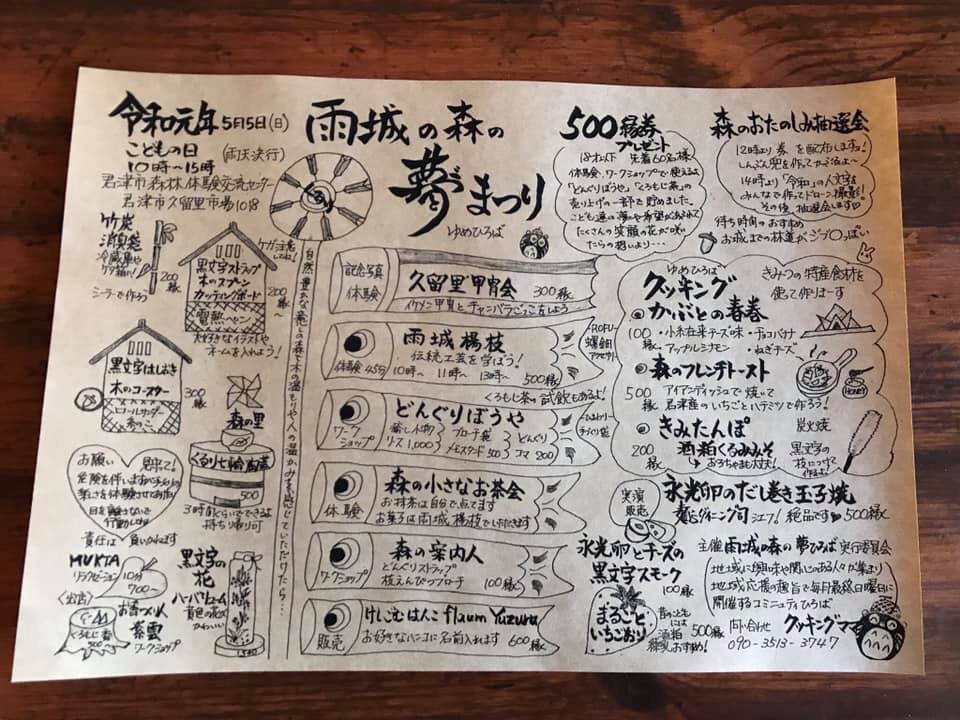 令和元年 5月5日(日)
こどもの日 (雨天決行)
10時〜15時
君津市森林体験交流センター
君津市久留里市場1018
雨城の森の
夢まつり
ゆめひろば
500縁券
プレゼント
18才以下 先着60名様
体験、ワークショップで使える
「どんぐりぼうや」「くろもじ茶」の
売り上げの一部で貯めました。
こども達の夢や希望があふれて
たくさんの笑顔の花が咲い
たらの想いより…
森のおたのしみ抽選会
12時より券を配布します!
しんぶん兜を作ってかぶ治よ〜
14時より「令和」の人文字を
みんなで作ってドローン撮影!
その後、抽選会します♡
待ち時間のおすすめ
お城までの林道がジブリっぽい
竹炭
消臭袋
冷蔵庫や
ゲタ箱に!
200縁
シーラーで作ろう
黒文字ストラップ
木のスプーン
カッティングボード
電熱ペン
200縁〜
ケガ注意してね!
大好きなイラストや
ネームを入れよう!
黒文字はしおき
木のコースター
300縁
森の里
くるり七輪陶芸
500
3時間くらいでできるよ
持ち帰り可
お願い
見守て!
責任は負いかねます
MUKTA
リラクゼーション 10分
700〜
お香づくり
紫雲
ワークショップ
黒文字の
花
ハーバリウム
黄色の花が
かわいい
1500
自然豊かな癒しの森で木の温もりや人の温かみを感じていただけたら…
記念写真
体験
久留里甲冑会 300縁
イケメン甲冑とチャンバラごっこをしよう
体験 45分
雨城楊枝
伝統工芸を学ぼう!
10時〜 11時〜 13時〜 500縁
くろもじ茶の試飲もあるよ!
ワークショップ
どんぐりぼうや
リース 1,000
メモスタンド 500
どんぐり
コマ 200
体験
森の小さなお茶会
お抹茶は自分で点てます
お菓子は雨城楊枝でいただきます
ワークショップ
森の案内人
どんぐりストラップ
桧えんぴつブローチ 100縁
販売
けしごむはんこ flaum Yuzuru
お好きなハンコに名前入れます 600縁
ゆめひろば
クッキング
きみつの特産食材を
使って作りまーす
かぶとの春巻
100縁
・小糸在来チーズ味 ・チョコバナナ
・アップルシナモン ・ねぎチーズ
森のフレンチトースト
500縁
アイアンディッシュで焼いて
君津産のいちごとハチミツで作ろう!
HONEY
きみたんぽ
200縁
酒粕くるみみそ
おこちゃまも大丈夫!
炭火焼
黒文字の
枝につけて
作るよ!
実演
販売
永光卵のだし巻き玉子焼
シェフ! 絶品です♡ 500縁
永光卵とチーズの
黒文字スモーク
100縁
まるごと
いちごおり
500縁
酒粕
練乳おすすめ!
主催 雨城の森の夢ひろば 実行委員会
地域に興味や関心のある人々が集まり
地域応援の趣旨で毎月最終日曜日に
開催するコミュニティひろば
問い合わせ クッキングママ
090-3513-3747